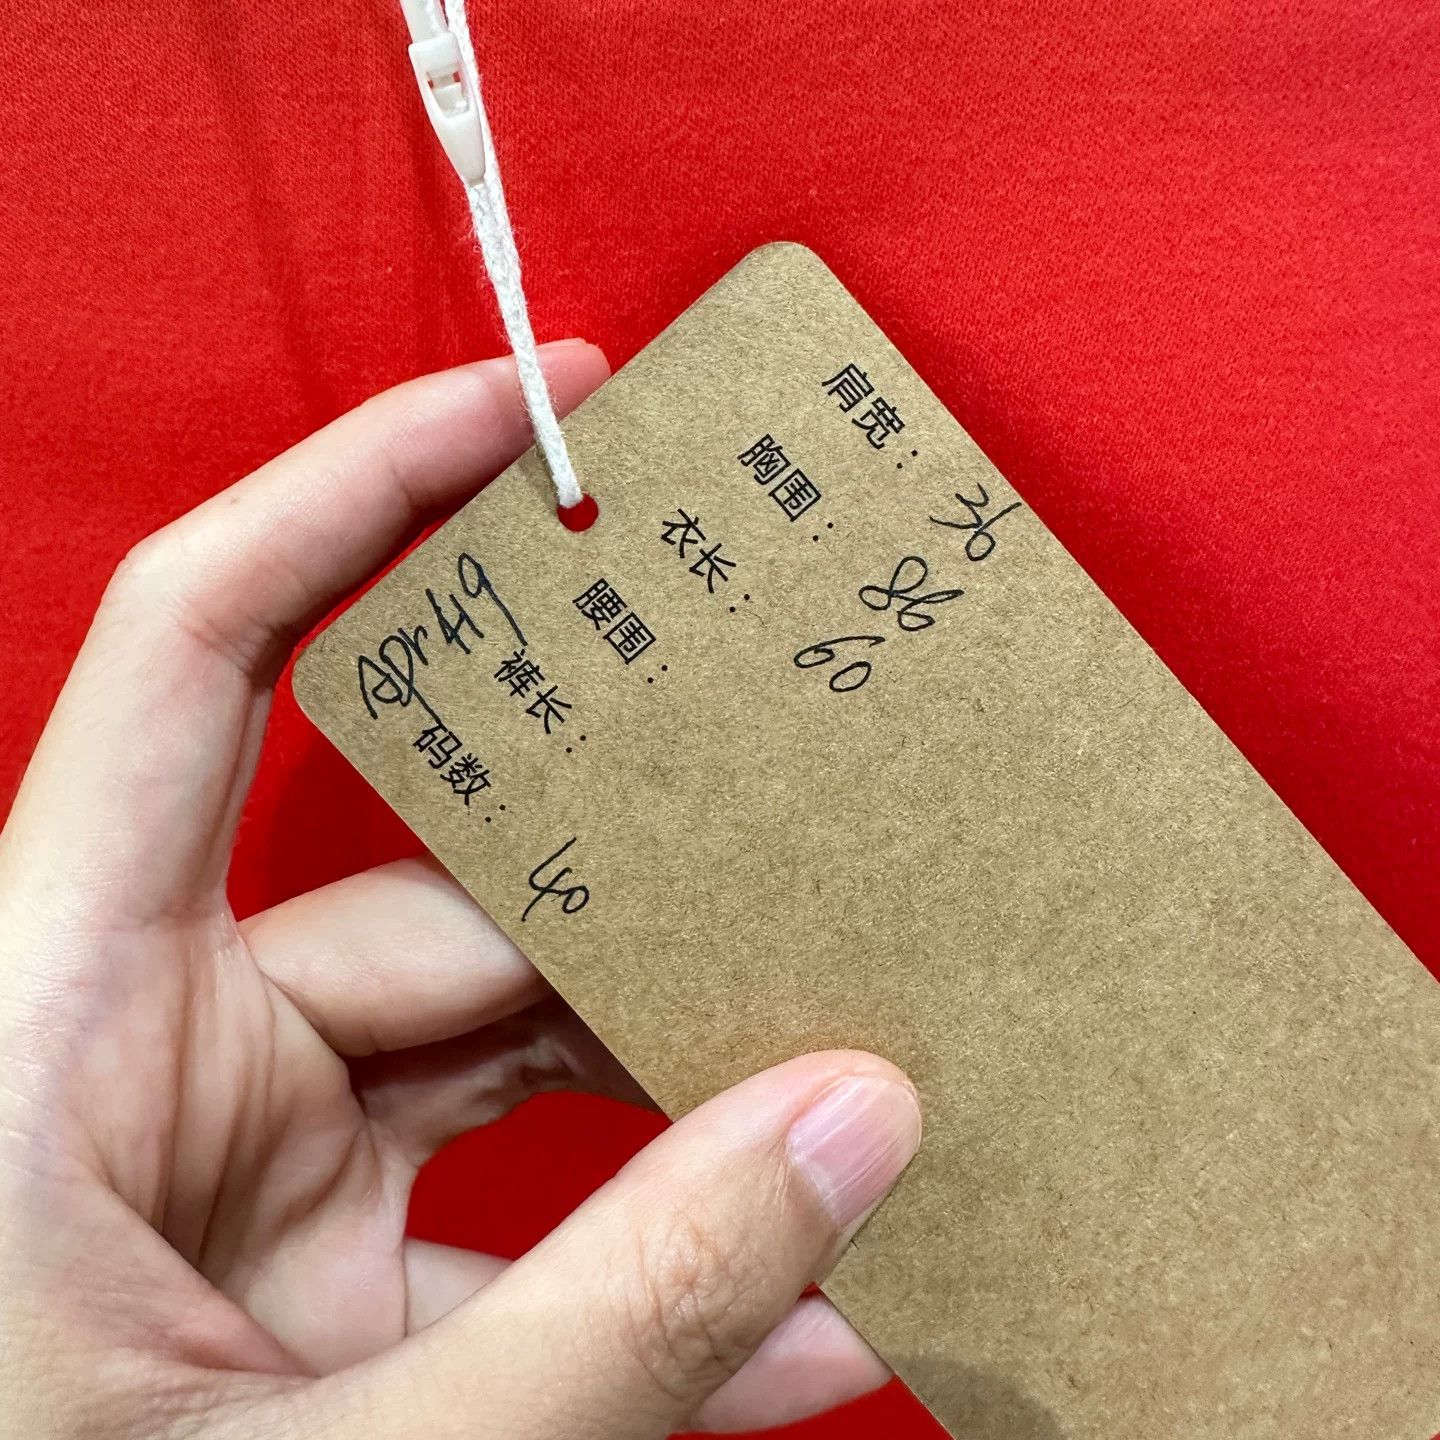 肩宽： 36
胸围： 86
衣长： 60
腰围：
裤长：
码数： 40